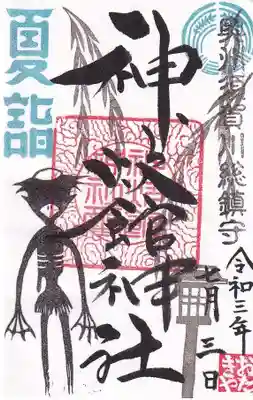 奥州須賀川総鎮守
令和三年
七月三日
神炊館神社
夏詣